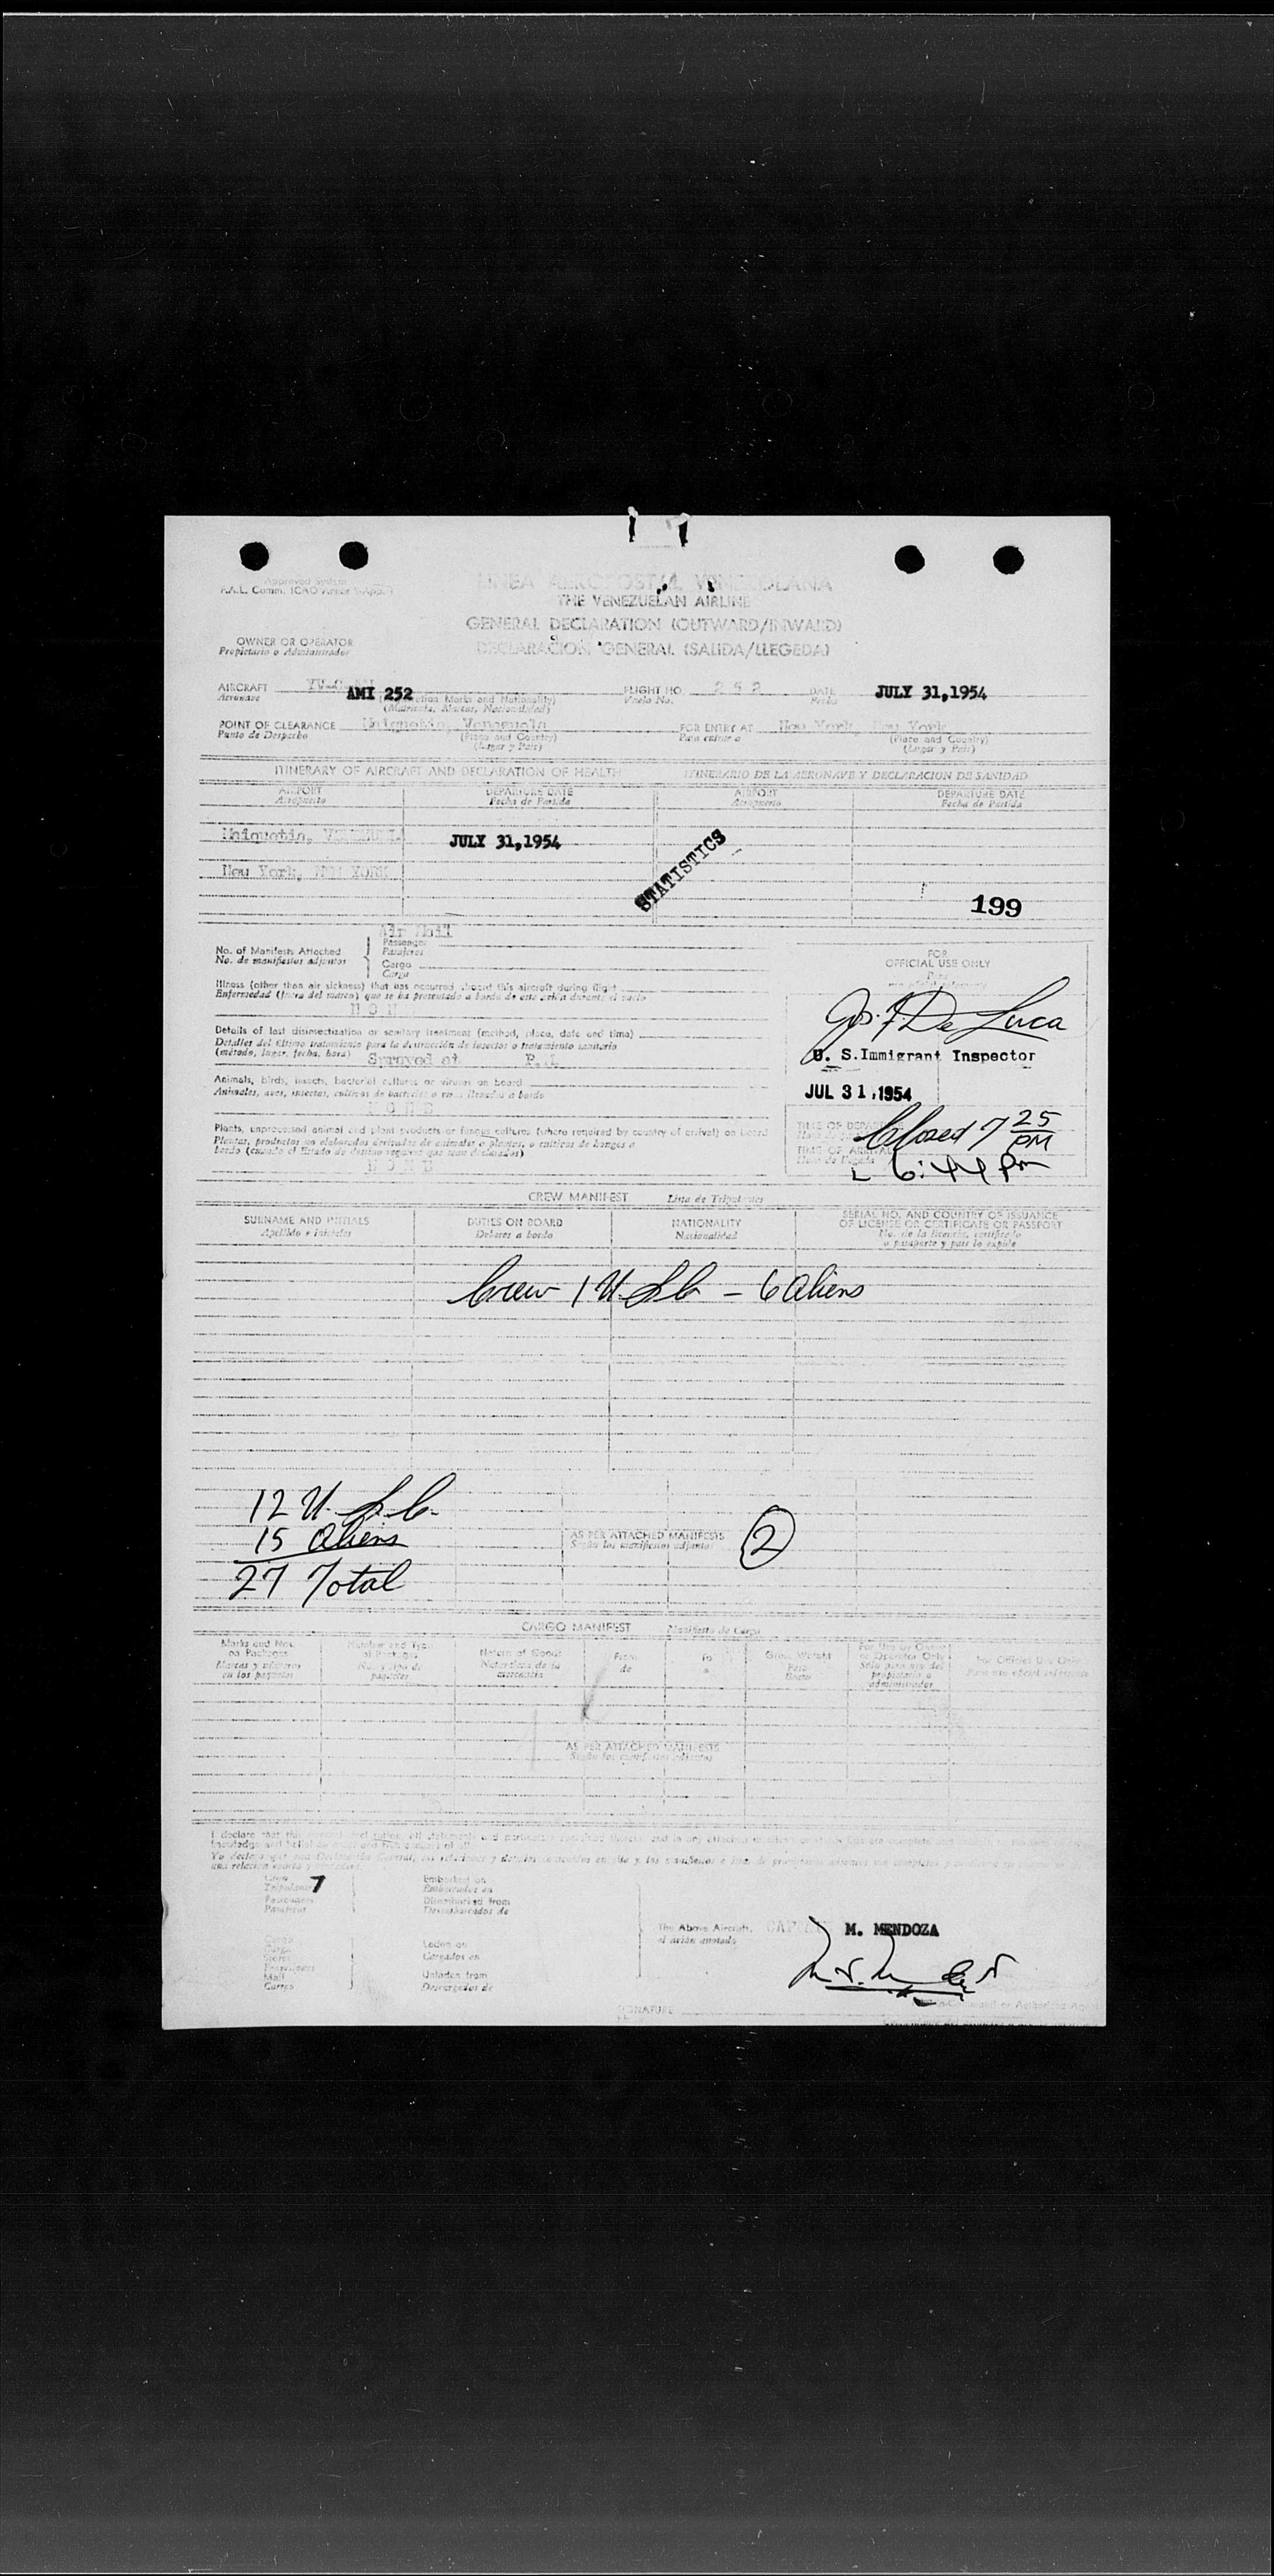 Approved System
F.A.L. Comm. ICAO Annex
LINEA AEROPOSTAL VENEZOLANA
THE VENEZUELAN AIRLINE
GENERAL DECLARATION (OUTWARD/INWARD)
DECLARACION GENERAL (SALIDA/LLEGEDA)
OWNER OR OPERATOR
Propietario o Administrador
AIRCRAFT AMI 252 FLIGHT NO. 252 DATE JULY 31,1954
Aeronave (Registration Marks and Nationality) Vuelo No. Fecha
(Matricula, Marcas, Nacionalidad)
POINT OF CLEARANCE Maiquetia, Venezuela FOR ENTRY AT New York, New York
Punto de Despacho (Place and Country) Para entrar a (Place and Country)
(Lugar y Pais) (Lugar y Pais)
ITINERARY OF AIRCRAFT AND DECLARATION OF HEALTH ITINERARIO DE LA AERONAVE Y DECLARACION DE SANIDAD
AIRPORT DEPARTURE DATE AIRPORT DEPARTURE DATE
Aeropuerto Fecha de Partida Aeropuerto Fecha de Partida
Maiquetia, VENEZUELA JULY 31,1954
STATISTICS
New York, NEW YORK
199
Air Mail
No. of Manifests Attached Passenger
No. de manifiestos adjuntos Pasajeros
Cargo
Carga
FOR
OFFICIAL USE ONLY
Illness (other than air sickness) that has occurred aboard this aircraft during flight
Enfermedad (fuera del mareo) que se ha presentado a bordo de este avión durante el vuelo
Jos. F. De Luca
U. S. Immigrant Inspector
JUL 31 1954
Details of last disinsectization or sanitary treatment (method, place, date and time)
Detalles del último tratamiento para la destrucción de insectos o tratamiento sanitario
(método, lugar, fecha, hora) Sprayed at
Animals, birds, insects, bacterial cultures or viruses on board
Animales, aves, insectos, cultivos de bacterias o virus llevados a bordo
NONE
Plants, unprocessed animal and plant products or fungus cultures (where required by country of arrival) on board
Plantas, productos no elaborados derivados de animales o plantas, o cultivos de hongos a
bordo (cuando el Estado de destino requiere que sean declarados)
NONE
TIME OF DEPARTURE Closed 7 25 PM
TIME OF ARRIVAL
Hora de llegada L 6:44 pm
CREW MANIFEST Lista de Tripulantes
SURNAME AND INITIALS DUTIES ON BOARD NATIONALITY SERIAL NO. AND COUNTRY OF ISSUANCE
OF LICENSE OR CERTIFICATE OR PASSPORT
Apellido e iniciales Deberes a bordo Nacionalidad No. de la licencia, certificado
o pasaporte y pais lo expide
Crew 1 U.S.C. – 6 aliens
12 U.S.C.
15 aliens
27 Total
AS PER ATTACHED MANIFESTS
Según los manifiestos adjuntos
2
CARGO MANIFEST Manifiesto de Carga
Marks and Nos. on Packages
Marcas y números en los paquetes
Number and Type of Packages
Nature of Goods
Naturaleza de la mercancía
From
de
To
a
Gross Weight
Peso Bruto
For Use by Owner or Operator Only
Sólo para uso del propietario o administrador
For Official Use Only
AS PER ATTACHED MANIFESTS
Crew 7
Tripulantes
Passengers
Pasajeros
Embarked on
Embarcados en
Disembarked from
Desembarcados de
Cargo
Carga
Stores
Provisiones
Mail
Correo
Laden on
Cargados en
Unladen from
Descargados de
The Above Aircraft.
el avión anotado
CAPTAIN M. MENDOZA
SIGNATURE